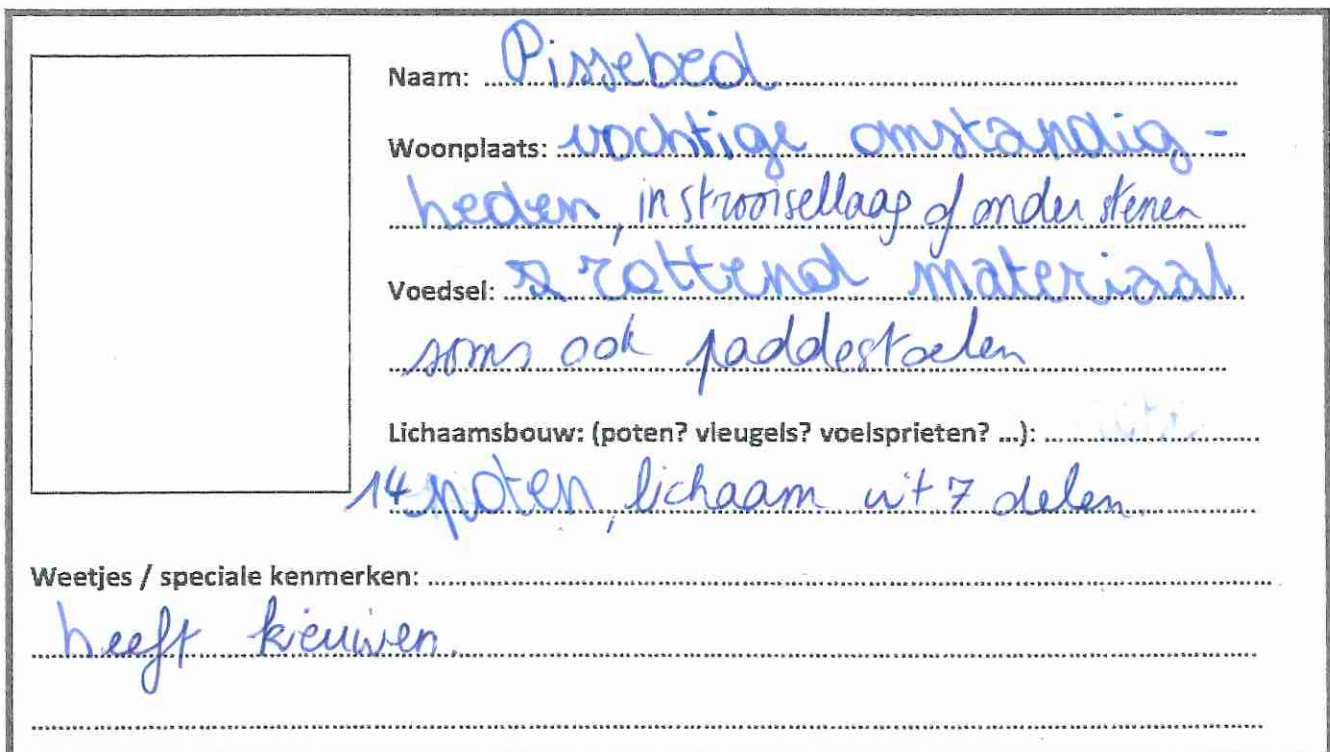 Naam: Pissebed
Woonplaats: vochtige omstandig-
heden, in strooisellaag of onder stenen
Voedsel: rottend materiaal
soms ook paddestoelen
Lichaamsbouw: (poten? vleugels? voelsprieten? ...):
14 poten, lichaam uit 7 delen.
Weetjes / speciale kenmerken:
heeft kieuwen.